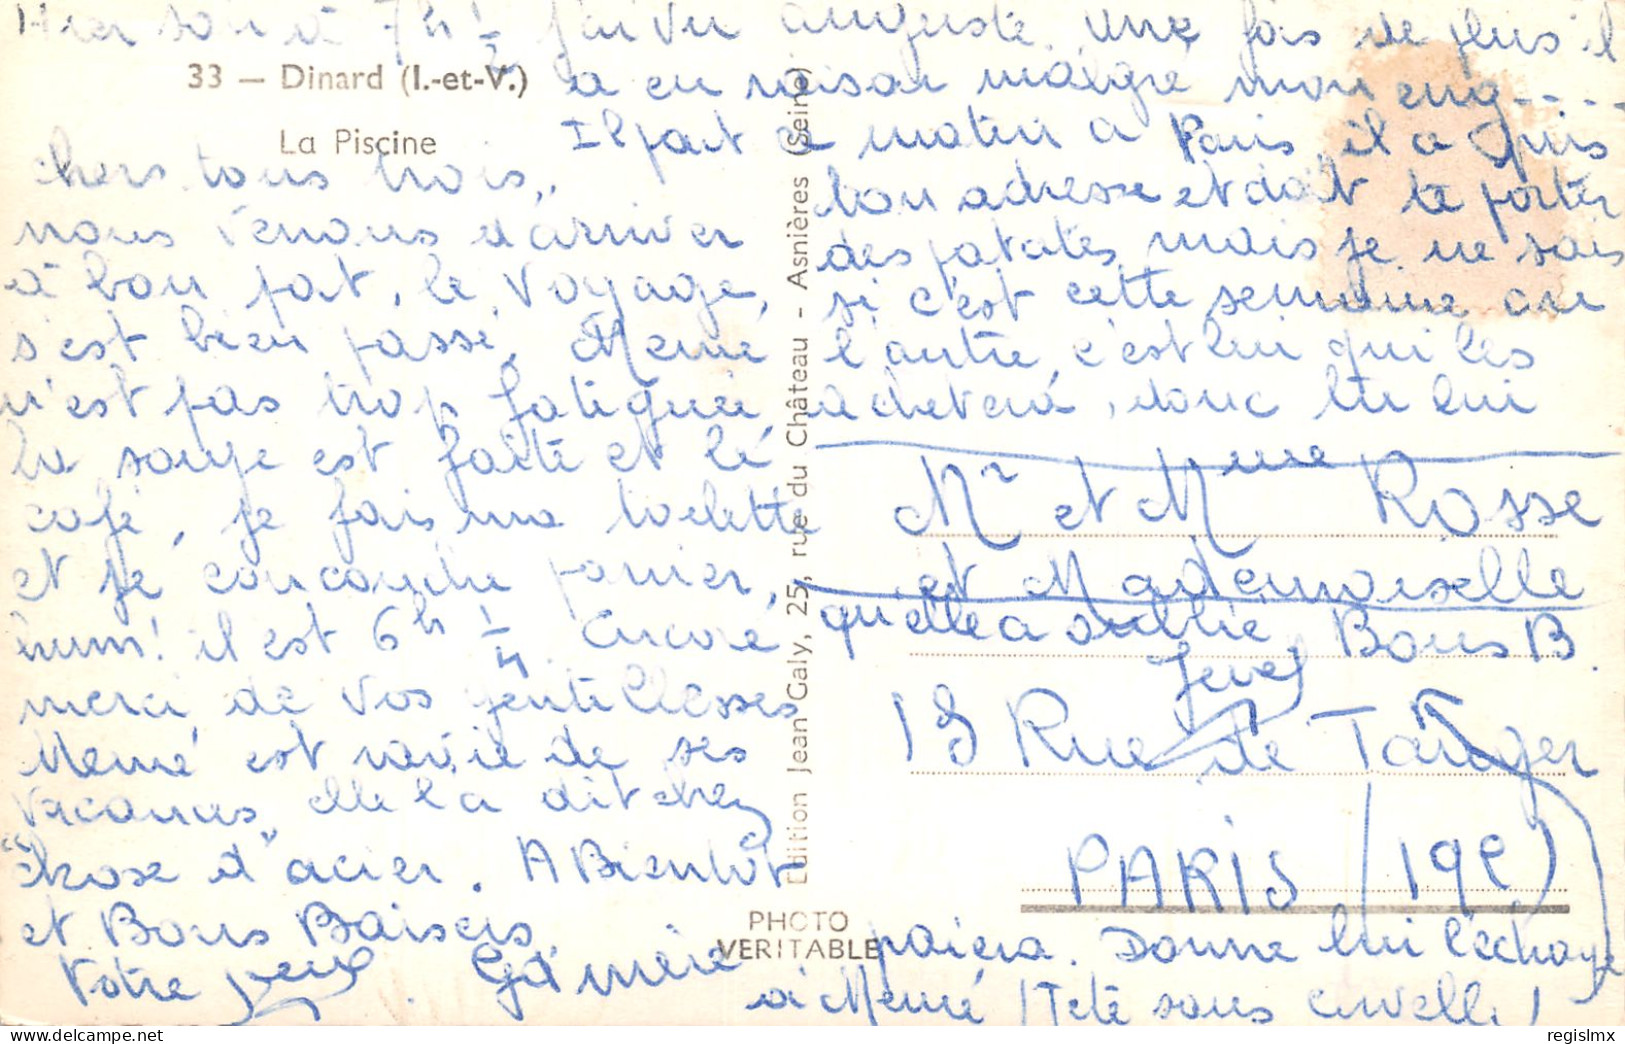 Hier soir à 7h 1/2 j'ai vu auguste. Une fois de plus il
a eu raison malgré mon eng----
Il part ce matin à Paris, il a pris
ton adresse et doit te porter
des patates mais je ne sais
si c'est cette semaine ou
l'autre, c'est lui qui les
achetera, donc tu lui
33 — Dinard (I.-et-V.)
La Piscine
chers tous trois,
nous venons d'arriver
à bon port, le voyage,
s'est bien passé, Mémé
n'est pas trop fatiguée
la soupe est faite et le
café, je fais ma toilette
et je
hum! il est 6h 1/2 Encore
merci de vos gentillesses
Mémé est ravie de ses
vacances, elle l'a dit chez
"Chose d'acier. A Bientôt
et Bons Baisers
Votre
Édition Jean Galy, 25, rue du Château - Asnières (Seine)
PHOTO
VERITABLE
Mr et Mme Rosse
et Mademoiselle
qu'elle a oublié Bons B.
13 Rue de Tanger
PARIS (19e)
paiera. Donne lui l'échange
à Mémé ! Tête sans cervelle !
regislmx